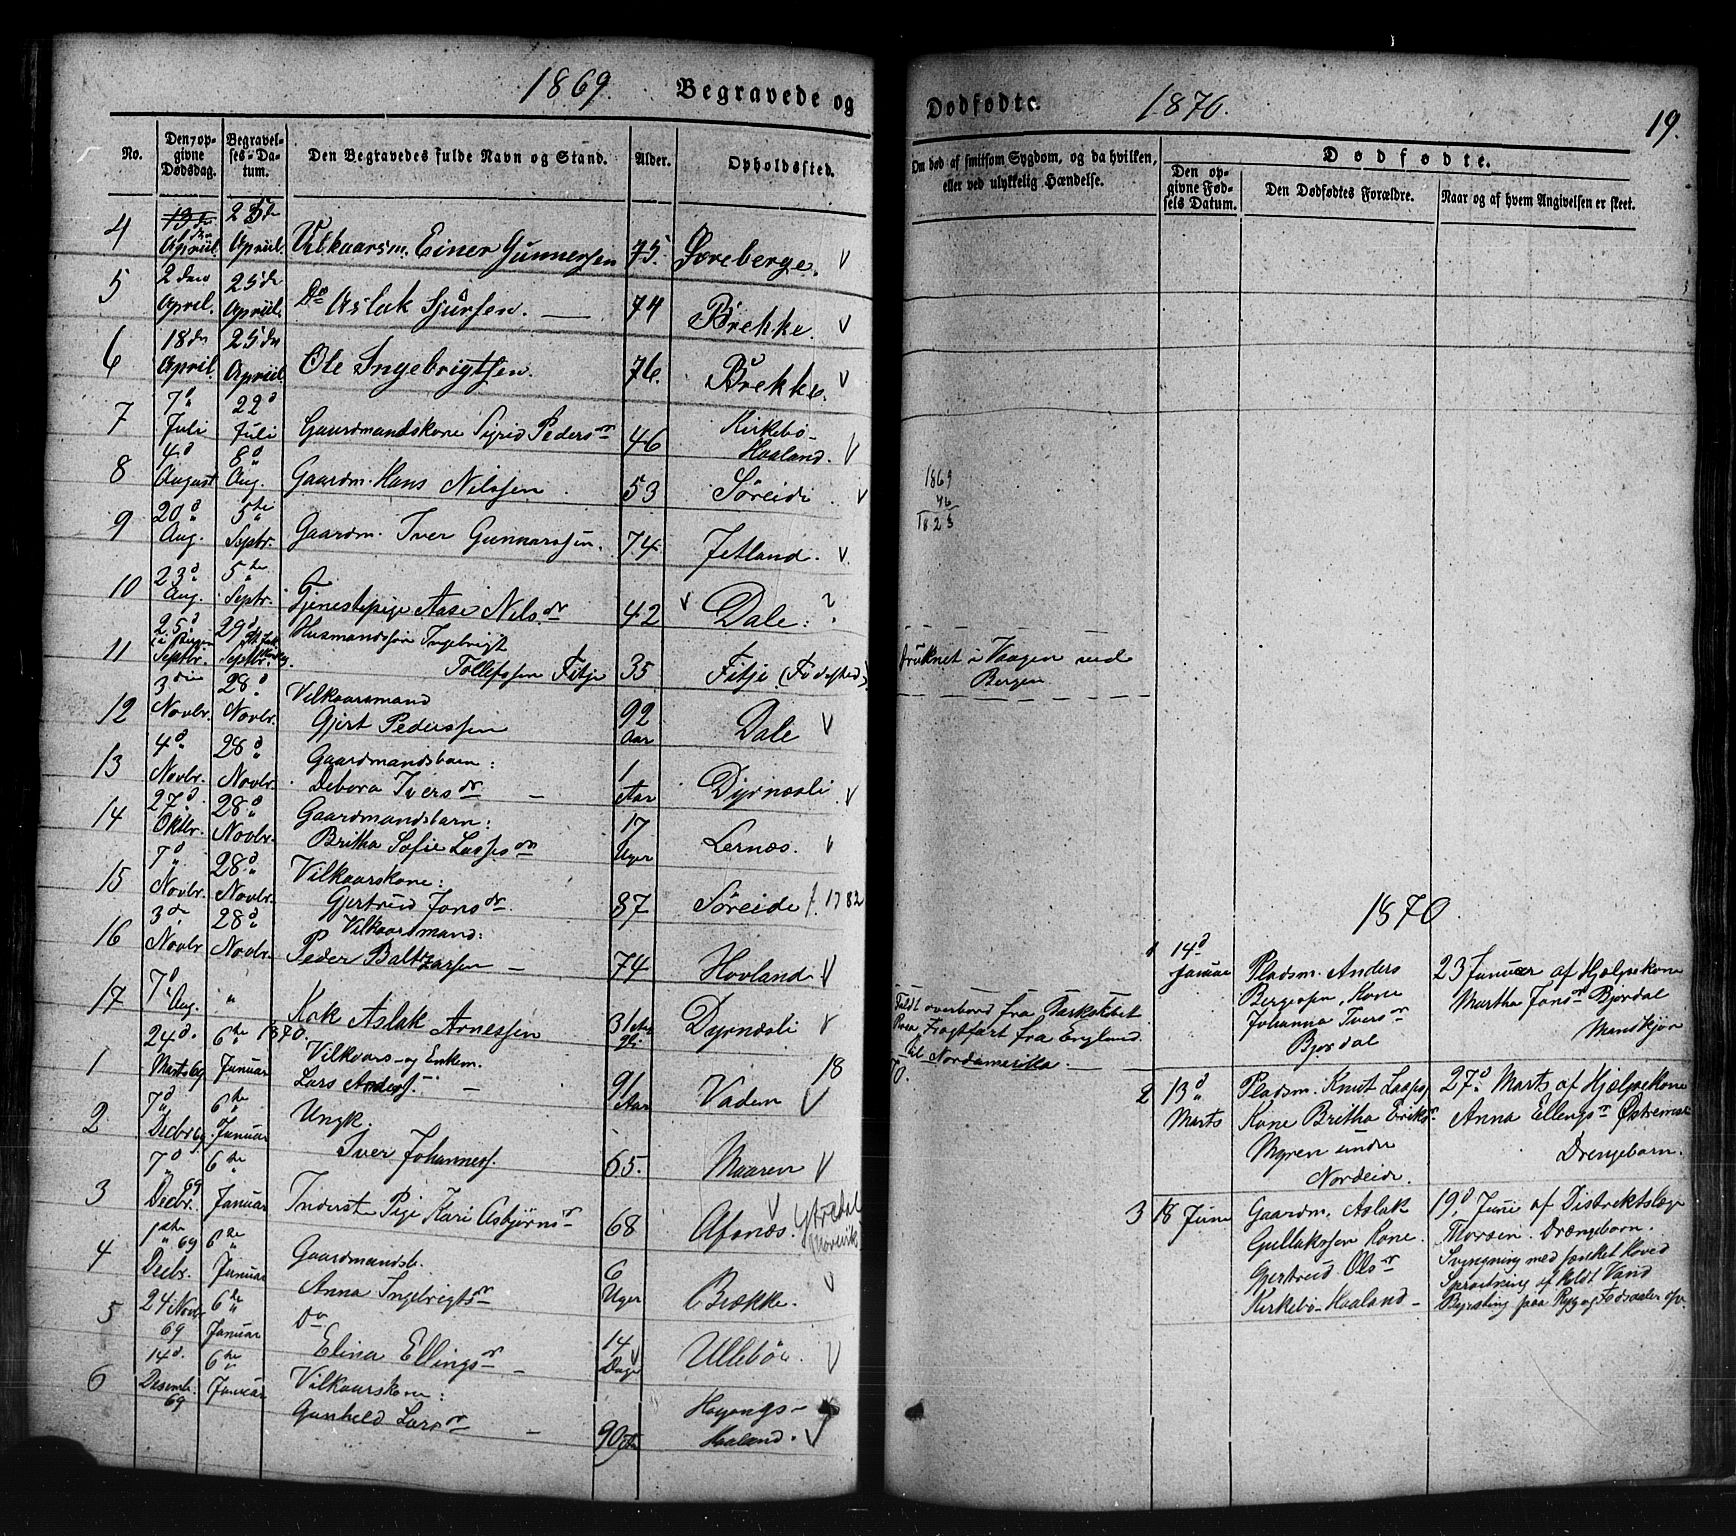 1869. Begravede og
No.
Den opgivne Dødsdag.
Begravelses-Datum.
Den Begravedes fulde Navn og Stand.
Alder.
Opholdssted.
4 April. 25de April. Vilkaarsm. Einer Gunnersen 75. Søreberge.
5 2den April. 25de April. Do Aslak Sjursen. 74 Brekke.
6 18de April. 25de April. Ole Ingebrigtsen. 76. Brekke.
7 7d Juli 22d Juli Gaardmandskone Sigrid Pedersdr 46 Kirkebø-
Haaland.
8 4d August 8d Aug. Gaardm. Hans Nilssen 53 Søreide
9 20d Aug. 5te Septbr. Gaardm. Iver Gunnarssen. 74 Jetland.
10 23d Aug. 5te Septbr. Tjenestepige Aase Nilsdr 42 Dale. ?
11 25d i Bergen Septbr. 29d Septbr. Husmandssøn Ingebrigt
Tollefssen Fitje 35 Fitje (Fødested)
12 3die Novbr. 28d Novbr. Vilkaarsmand
Gjert Pederssen 92 Aar Dale
13 4d Novbr. 28d Novbr. Gaardmandsbarn:
Debora Iversdr 1 Aar Dyrnæsli
14 27d Oktbr. 28d Novbr. Gaardmandsbarn:
Britha Sofie Lassesdr 17 Uger Lernæs.
15 7d Novbr. 28d Novbr. Vilkaarskone:
Gjertrud Jonsdr. 87 Søreide f. 1782
16 3die Novbr. 28d Novbr. Vilkaarsmand:
Peder Baltzarsen 74 Hovland
17 7d Aug. " Kok Aslak Arnessen 31 Dyrnæsli
1870.
1 24d Marts 69 6te Januar Vilkaars- og Enkem.
Lars Anders. 91 Aar Vadem
18
2 7d Decbr 69 6te Januar Ungk.
Iver Johannes. 65. Maaren
3 7d Decbr. 69 6te Januar Inderst Pige Kari Asbjørnsdr 68 Afsnæs. Ytredal
4 1ste Decbr. 69 6te Januar Gaardmandsb.
Anna Ingebrigtsdr 6 Uger Brække.
5 24 Novbr 69 6te Januar Do
Elina Ellingsdr 14 Dage Ullebøe
6 14d. Desemb. 69 6te Januar Vilkaarskone:
Gunhild Larsdr 90 Høyangs-
Haaland.
Dødfødte. 1870. 19.
Om død af smitsom Sygdom, og da hvilken,
eller ved ulykkelig Hændelse.
Dødfødte.
Den opgivne Fødsels Datum.
Den Dødfødtes Forældre.
Naar og af hvem Angivelsen er skeet.
1869
46
1823
druknet i Vaagen ved
Bergen
Faldt overbord fra Barkskibet
Fragtfart fra England
til Nordamerika.
1870
1 14d Januar Pladsm. Anders
Bergesen, Kone
Johanna Iversdr
Bjordal
23 Januar af Hjælpekone
Martha Jonsdr Bjordal
Mandkjøn
2 13d Marts Pladsm. Knut Lasses.
Kone Britha Eriksdr
Myren under
Nordeide.
27d Marts af Hjælpekone
Anna Ellingsdr Østrem
Drengebarn.
3 18 June Gaardm. Aslak
Gullaksen Kone.
Gjertrud Olsdr
Kirkebø-Haaland
19d Juni af Distriktslæge
Morsen. Drængebarn.
Svyngning med sænket Hoved
Sprøitning af koldt Vand
Børsting paa Ryg og Fodsaaler